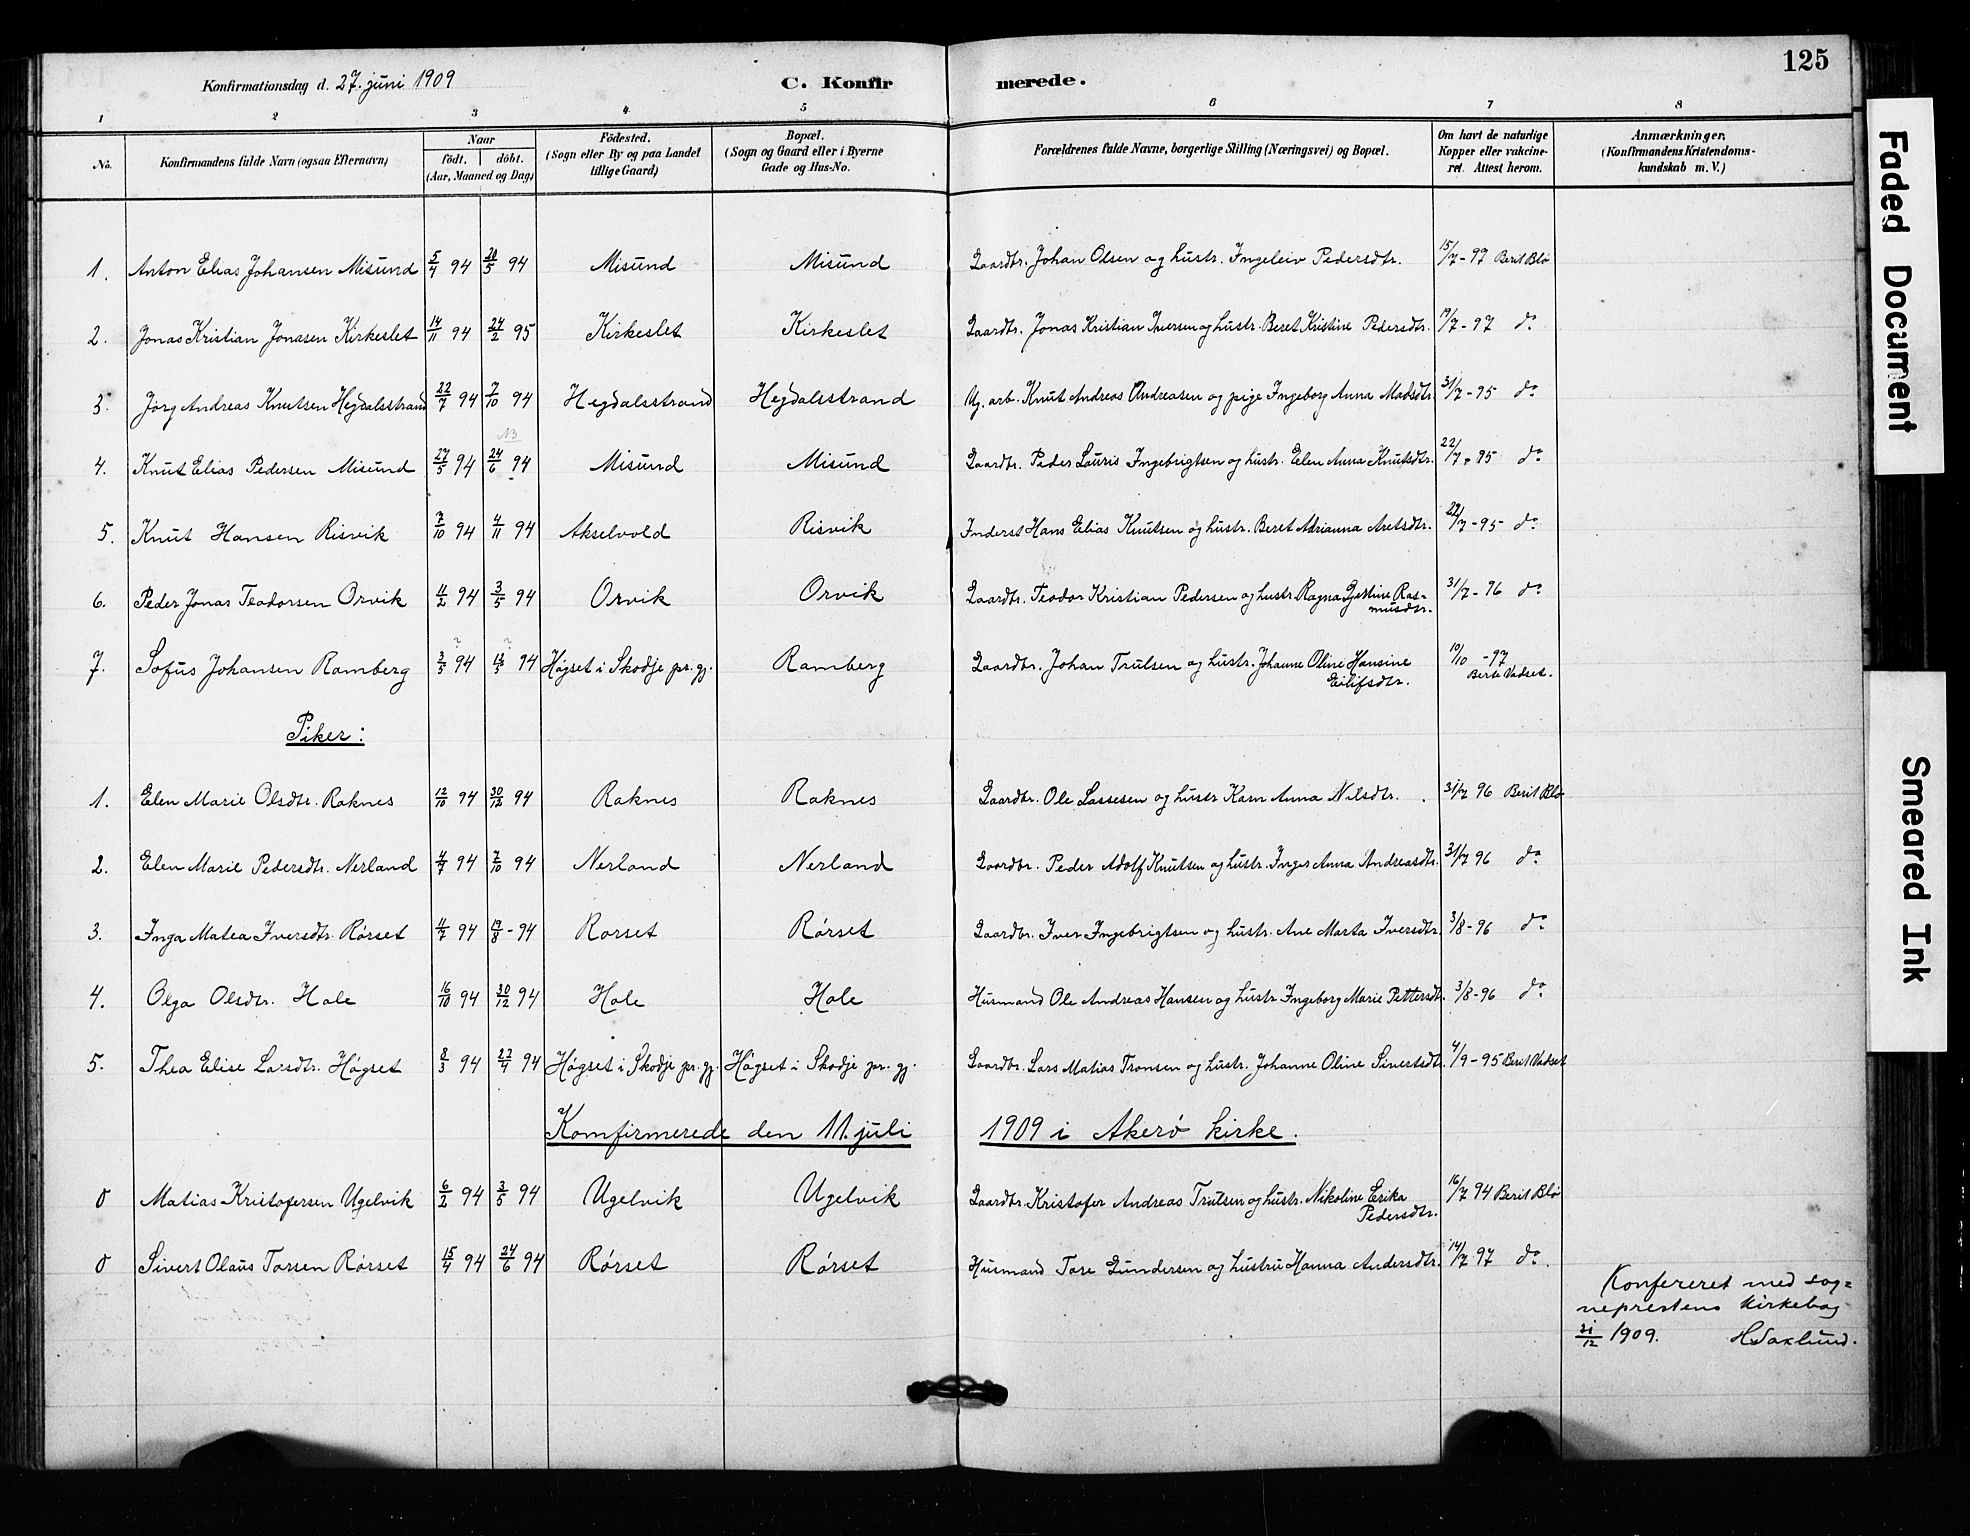 125
Konfirmationsdag d. 27. juni 1909
C. Konfirmerede.
1 2 3 4 5 6 7 8
No. Konfirmandens fulde Navn (ogsaa Efternavn) Naar födt. döbt. (Aar, Maaned og Dag) Födested. (Sogn eller By og paa Landet tillige Gaard) Bopæl. (Sogn og Gaard eller i Byerne Gade og Hus-No. Forældrenes fulde Navne, borgerlige Stilling (Næringsvei) og Bopæl. Om havt de naturlige Kopper eller vakcineret. Attest herom. Anmærkninger. (Konfirmandens Kristendomskundskab m. V.)
1. Anton Elias Johansen Misund 5/4 94 20/5 94 Misund Misund Gaardbr. Johan Olsen og hustr. Ingeleiv Pedersdtr. 15/7-97 Berit Blø
2. Jonas Kristian Jonasen Kirkeslet 14/11 94 24/2 95 Kirkeslet Kirkeslet Gaardbr. Jonas Kristian Iversen og hustr. Beret Kristine Pedersdtr. 19/7-97 do
3. Jørg Andreas Knutsen Hegdalsstrand 22/7 94 7/10 94 Hegdalsstrand Hegdalsstrand Ug. arb. Knut Andreas Andreasen og pige Ingeborg Anna Madsdtr. 31/7-95 do
4. Knut Elias Pedersen Misund 27/5 94 NB 24/6 94 Misund Misund Gaardbr. Peder Lauris Ingebrigtsen og hustr. Elen Anna Knutsdtr. 22/7-95 do
5. Knut Hansen Risvik 7/10 94 4/11 94 Akselvold Risvik Inderst Hans Elias Knutsen og hustr. Beret Adrianna Aretsdtr. 22/7-95 do
6. Peder Jonas Teodorsen Orvik 4/2 94 3/5 94 Orvik Orvik Gaardbr. Teodor Kristian Pedersen og hustr. Ragna Gjertine Rasmusdtr. 31/7-96 do
7. Sofus Johansen Ramberg 3/5 94 13/5 94 Høgset i Skodje pr. gj. Ramberg Gaardbr. Johan Trulsen og hustr. Johanne Oline Hansine Eilifsdtr. 10/10-97 Berte Vadset.
Piker:
1. Elen Marie Olsdtr. Raknes 12/10 94 30/12 94 Raknes Raknes Gaardbr. Ole Lassesen og hustr Karn Anna Nilsdtr. 31/7 96 Berit Blø
2. Elen Marie Pedersdtr. Nerland 4/7 94 7/10 94 Nerland Nerland Gaardbr. Peder Adolf Knutsen og hustr. Inger Anna Andreasdtr. 31/7 96 do
3. Inga Matea Iversdtr. Rørset 4/7 94 19/8-94 Rorset Rørset Gaardbr. Iver Ingebrigtsen og hustr. Ane Marta Iversdtr. 3/8-96 do
4. Olga Olsdtr. Hole 16/10 94 30/12 94 Hole Hole Husmand Ole Andreas Hansen og hustr Ingeborg Marie Pettersdt. 3/8-96 do
5. Thea Elise Larsdtr. Høgset 8/3 94 22/4 94 Høgset i Skodje pr. gj. Høgset i Skodje pr. gj. Gaardbr. Lars Matias Tronsen og hustr. Johanne Oline Sivertsdt. 4/9-95 Berit Vadset
Komfirmerede den 11. juli 1909 i Akerø kirke.
0 Matias Kristofersen Ugelvik 6/2 94 3/5 94 Ugelvik Ugelvik Gaardbr. Kristofer Andreas Trulsen og hustr. Nikoline Erika Pedersdtr. 16/7 94 Berit Blø
0 Sivert Olaus Torsen Rørset 15/4 94 24/6 94 Rørset Rørset Husmand Tore Gundersen og hustru Hanna Andersdtr. 14/7 97 do.
Konfereret med sog=
neprestens Kirkebog
31/12 1909. H Saxlund.
Faded Document
Smeared Ink